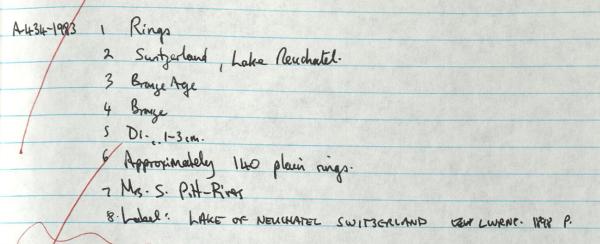 A.434-1983 1 Rings
2 Switzerland, Lake Neuchatel.
3 Bronze Age
4 Bronze
5 Di. c. 1-3 cm.
6 Approximately 140 plain rings.
7 Mrs. S. Pitt-Rivers
8. Label: LAKE OF NEUCHATEL SWITZERLAND 1898 P.